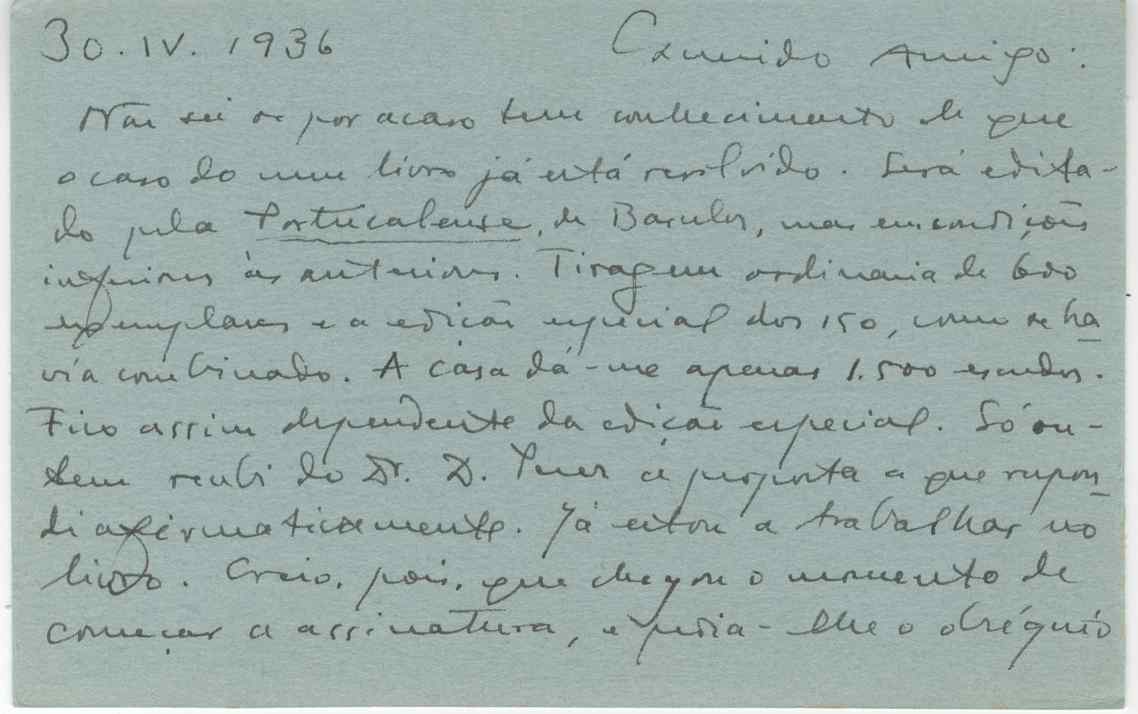 30.IV.1936 Querido Amigo:
Não sei se por acaso tem conhecimento de que
o caso do meu livro já está resolvido. Será edita-
do pela Portucalense, de Barcelos, mas em condições
inferiores às anteriores. Tiragem ordinaria de 600
exemplares e a edição especial dos 150, como se ha
via combinado. A casa dá-me apenas 1.500 escudos.
Fico assim dependente da edição especial. Só on-
tem recebi do Dr. D. Peres a proposta a que respon
di afirmativamente. Já estou a trabalhar no
livro. Creio, pois, que chegou o momento de
começar a assinatura, e pedia-lhe o obséquio